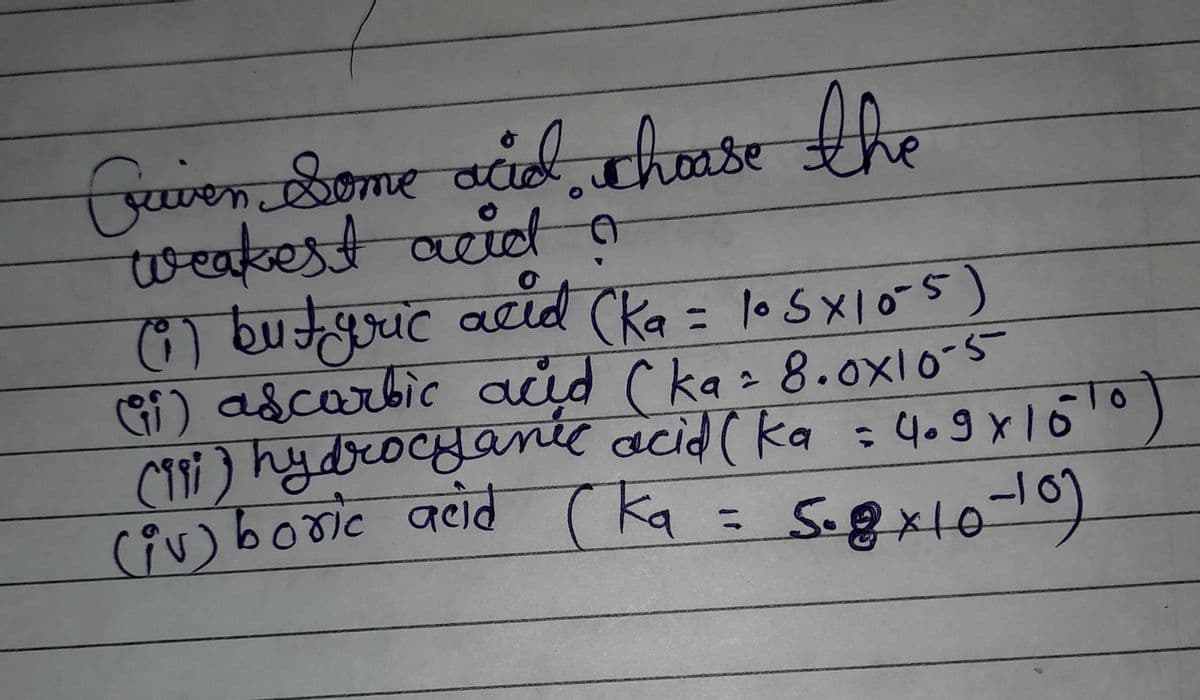 Given Some acid. choose the
weakest acid ?
(i) butyric acid (Ka = 1.5x10-5)
(ii) ascorbic acid (ka = 8.0x10-5
(iii) hydrocyanic acid (Ka = 4.9x10-10)
(iv) boric acid (Ka = 5.8x10-10)